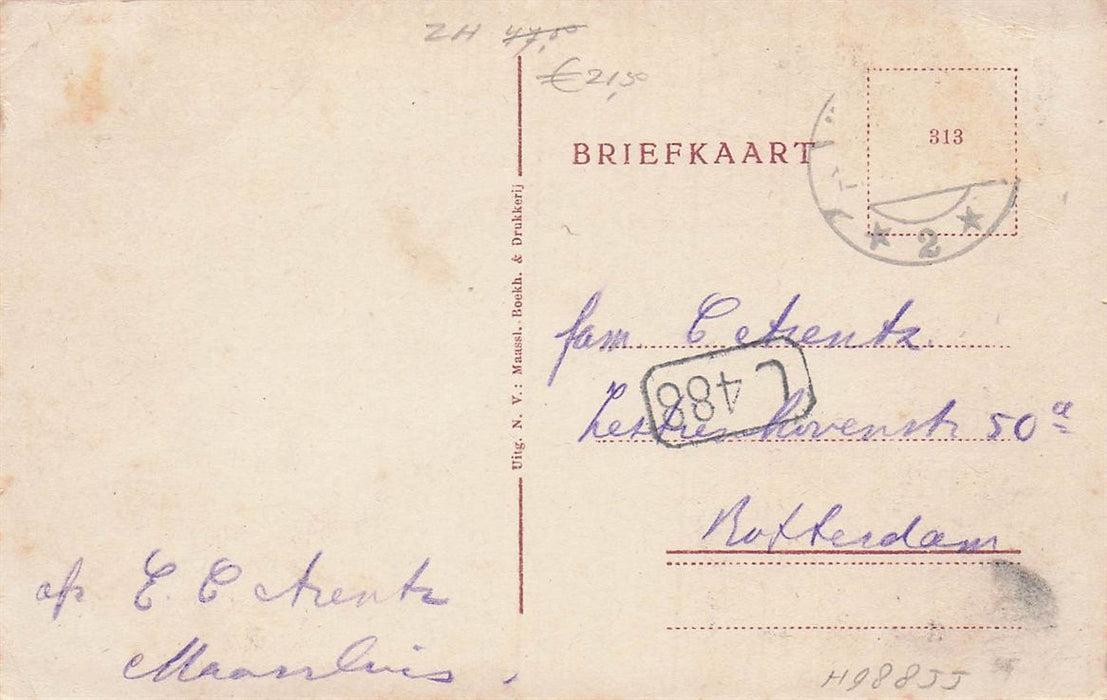 ZH 47,50
€ 21,50
BRIEFKAART
313
* 2 *
Uitg. N. V.: Maassl. Boekh. & Drukkerij
fam. C Arentz.
488
50a
Rotterdam
afz E. C Arentz
Maassluis.
H98855